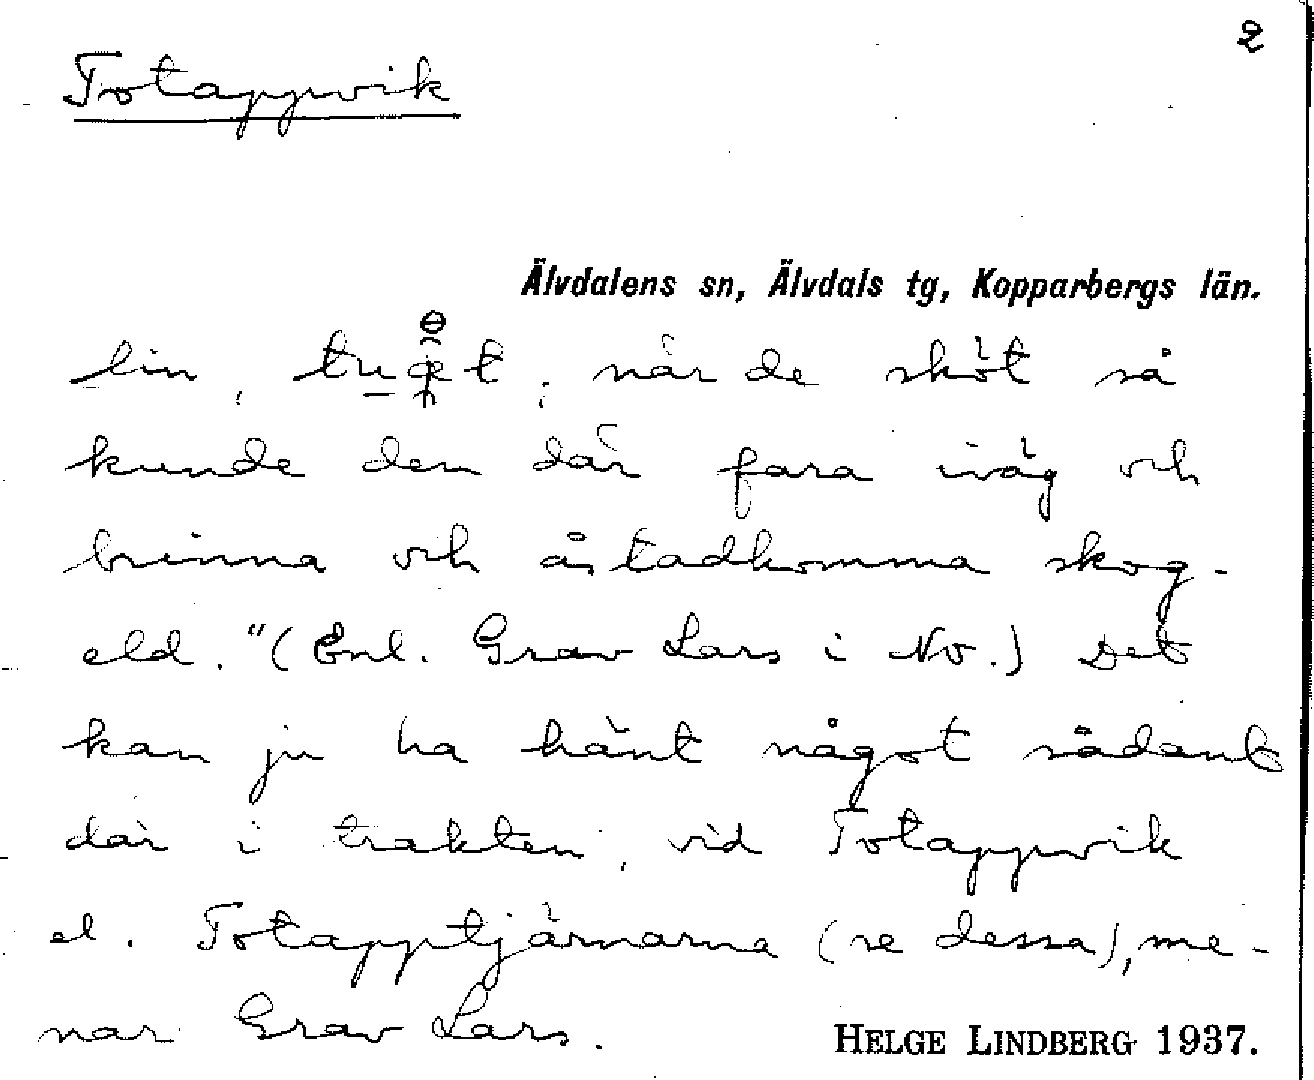 2
Totappvik
Älvdalens sn, Älvdals tg, Kopparbergs län.
lin, ; när de sköt så
kunde den där fara iväg och
brinna och åstadkomma skog-
eld." (Enl. Grav Lars i Nv.) Det
kan ju ha hänt något sådant
där i trakten, vid Totappvik
el. Totapptjärnarna (se dessa), me-
nar Grav Lars.
HELGE LINDBERG 1937.